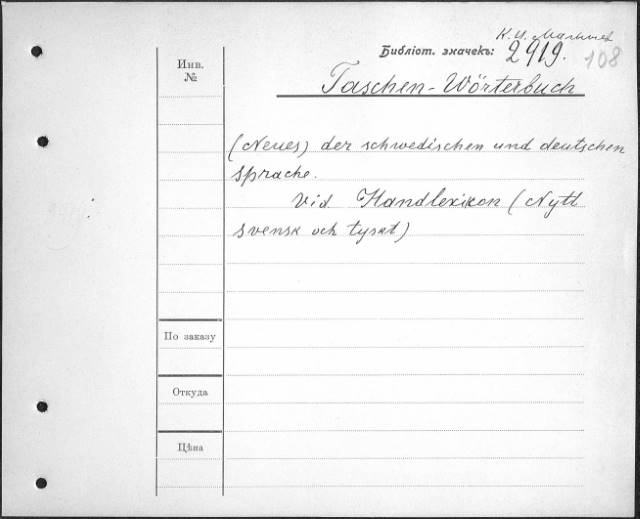 К. И.
Библіот. значекъ: 2919. 108
Инв.
№
Taschen-Wörterbuch
(Neues) der schwedischen und deutschen
sprache.
Vid Handlexikon (Nytt
svensk och tyskt)
По заказу
Откуда
Цѣна